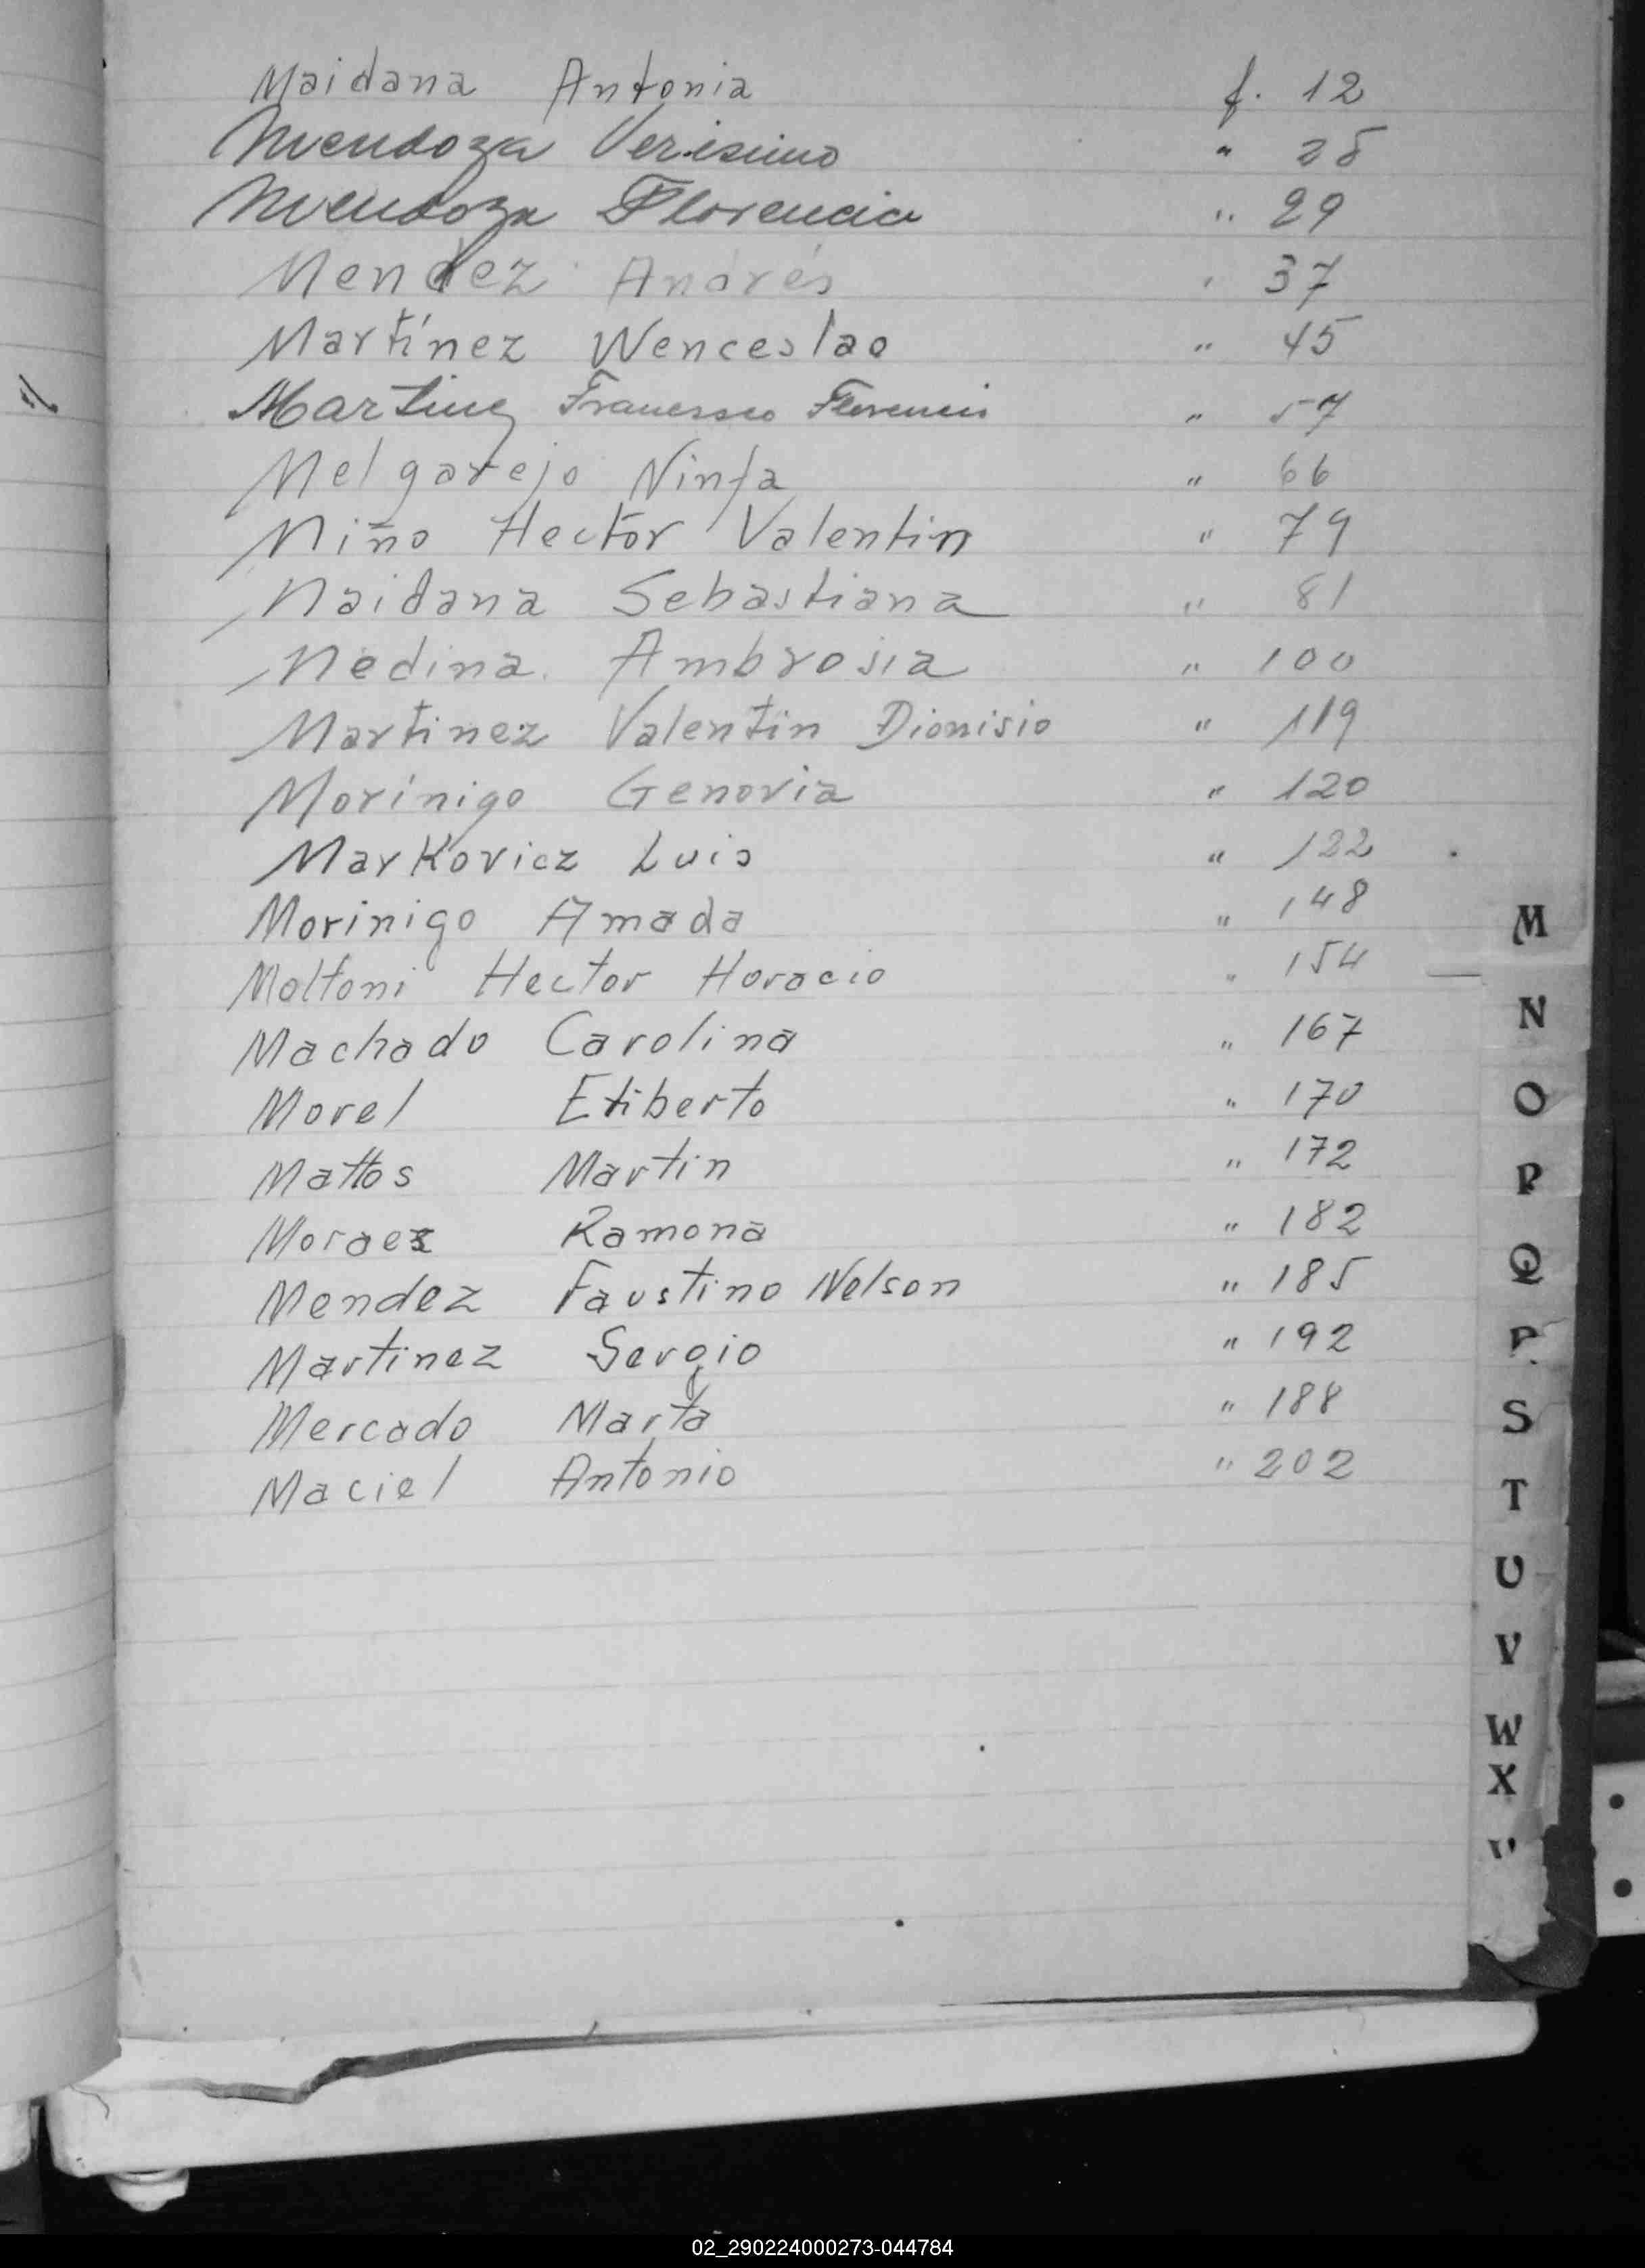 Maidana Antonia f. 12
Mendoza Verisimo " 28
Mendoza Florencia " 29
Mendez Andrés " 37
Martínez Wenceslao " 45
Martinez Francisco Florencio " 57
Melgarejo Ninfa " 66
Miño Hector Valentin " 79
Maidana Sebastiana " 81
Medina Ambrosia " 100
Martinez Valentin Dionisio " 119
Morínigo Genovia " 120
Markovicz Luis " 122
Morinigo Amada " 148
Moltoni Hector Horacio " 154
Machado Carolina " 167
Morel Etiberto " 170
Mattos Martin " 172
Moraes Ramona " 182
Mendez Faustino Nelson " 185
Martinez Sergio " 192
Mercado Marta " 188
Maciel Antonio " 202
M
N
O
P
Q
R
S
T
U
V
W
X
02_290224000273-044784